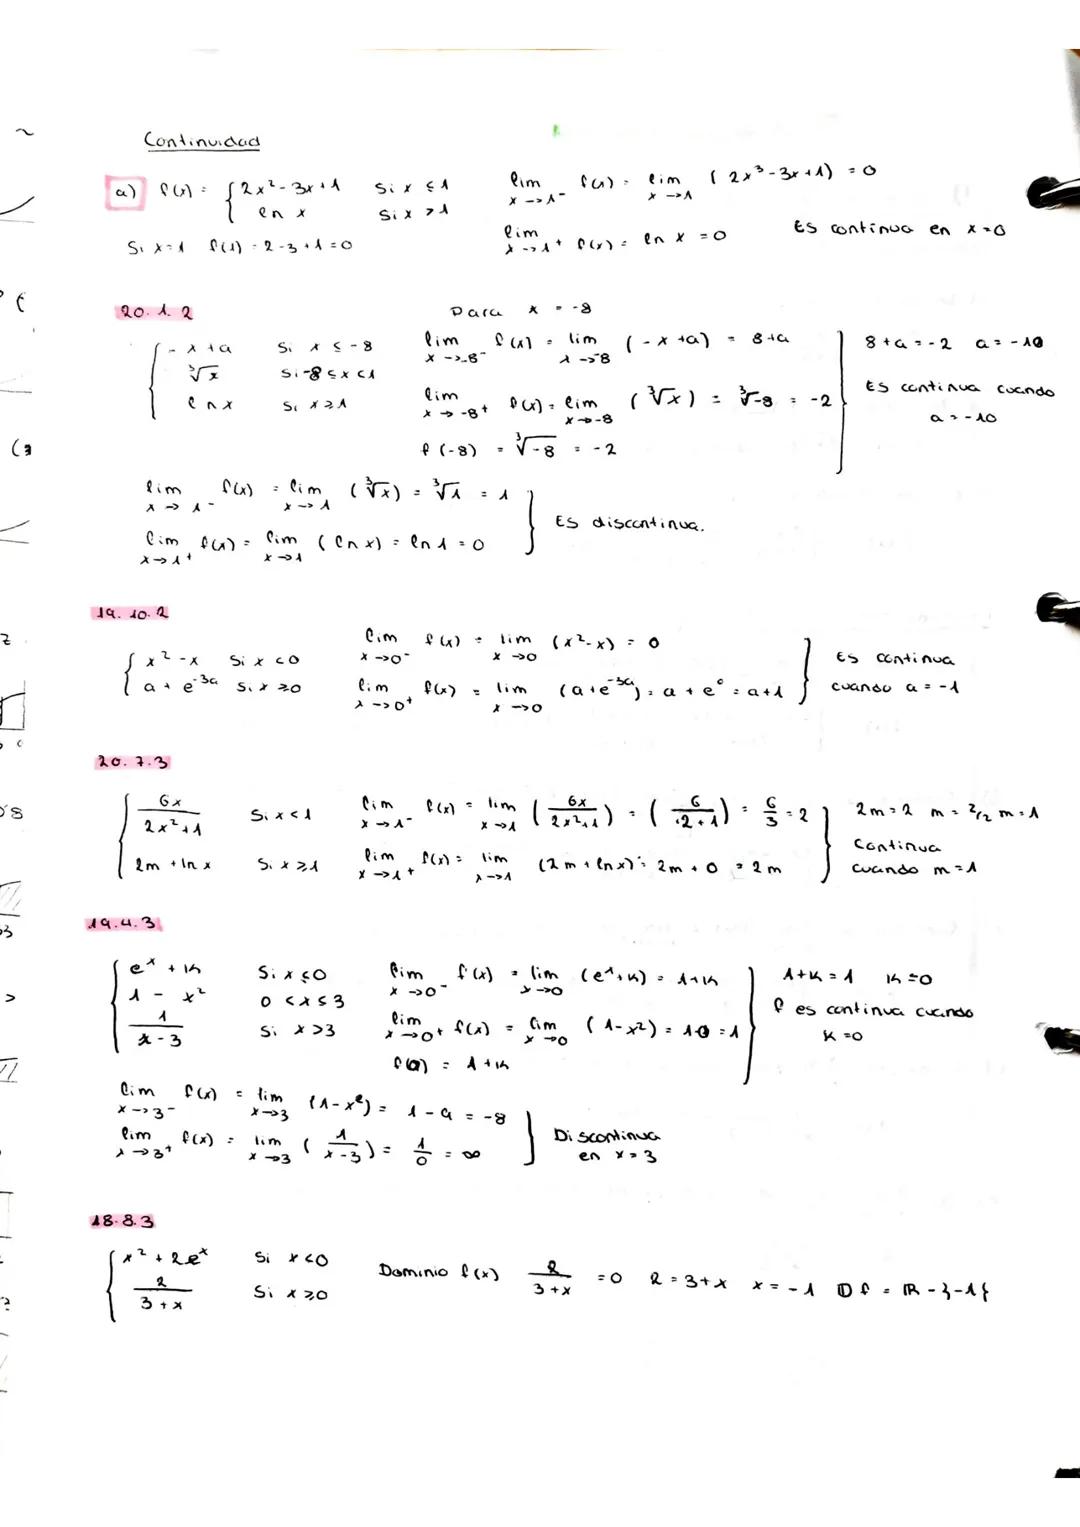 Continuidad
a) f(x) = { 2x² - 3x + 1 Si x ≤ 1
ln x Si x > 1
Si x=1 f(1) = 2 - 3 + 1 = 0
lim x->1⁻ f(x) = lim x->1 (2x³ - 3x + 1) = 0
lim x->1⁺ f(x) = ln x = 0 Es continua en x=0
20.1.2
{ -x + a Si x ≤ -8
∛x Si -8 ≤ x < 1
ln x Si x ≥ 1
Para x = -8
lim x->-8⁻ f(x) = lim x->-8 (-x + a) = 8 + a
lim x->-8⁺ f(x) = lim x->-8 (∛x) = ∛-8 = -2
f(-8) = ∛-8 = -2
8 + a = -2 a = -10
Es continua cuando
a = -10
lim x->1⁻ f(x) = lim x->1 (∛x) = ∛1 = 1
lim x->1⁺ f(x) = lim x->1 (ln x) = ln 1 = 0
Es discontinua.
19.10.2
{ x² - x Si x < 0
a + e⁻³ᵃ Si x ≥ 0
lim x->0⁻ f(x) = lim x->0 (x² - x) = 0
lim x->0⁺ f(x) = lim x->0 (a + e⁻³ᵃ) = a + e⁰ = a + 1
Es continua
cuando a = -1
20.7.3
{ 6x / 2x² + 1 Si x < 1
2m + ln x Si x ≥ 1
lim x->1⁻ f(x) = lim x->1 (6x / 2x² + 1) = (6 / 2 + 1) = 6/3 = 2
lim x->1⁺ f(x) = lim x->1 (2m + ln x) = 2m + 0 = 2m
2m = 2 m = 2/2 m = 1
Continua
cuando m = 1
19.4.3
{ eˣ + K Si x ≤ 0
1 - x² 0 < x ≤ 3
1 / x - 3 Si x > 3
lim x->0⁻ f(x) = lim x->0 (eˣ + K) = 1 + K
lim x->0⁺ f(x) = lim x->0 (1 - x²) = 1-0 = 1
f(0) = 1 + K
1 + K = 1 K = 0
f es continua cuando
K = 0
lim x->3⁻ f(x) = lim x->3 (1 - x²) = 1 - 9 = -8
lim x->3⁺ f(x) = lim x->3 (1 / x - 3) = 1/0 = ∞
Discontinua
en x = 3
18.8.3
{ x² + 2eˣ Si x < 0
2 / 3 + x Si x ≥ 0
Dominio f(x) 2 / 3 + x = 0 2 = 3 + x x = -1 D f = ℝ - {-1}